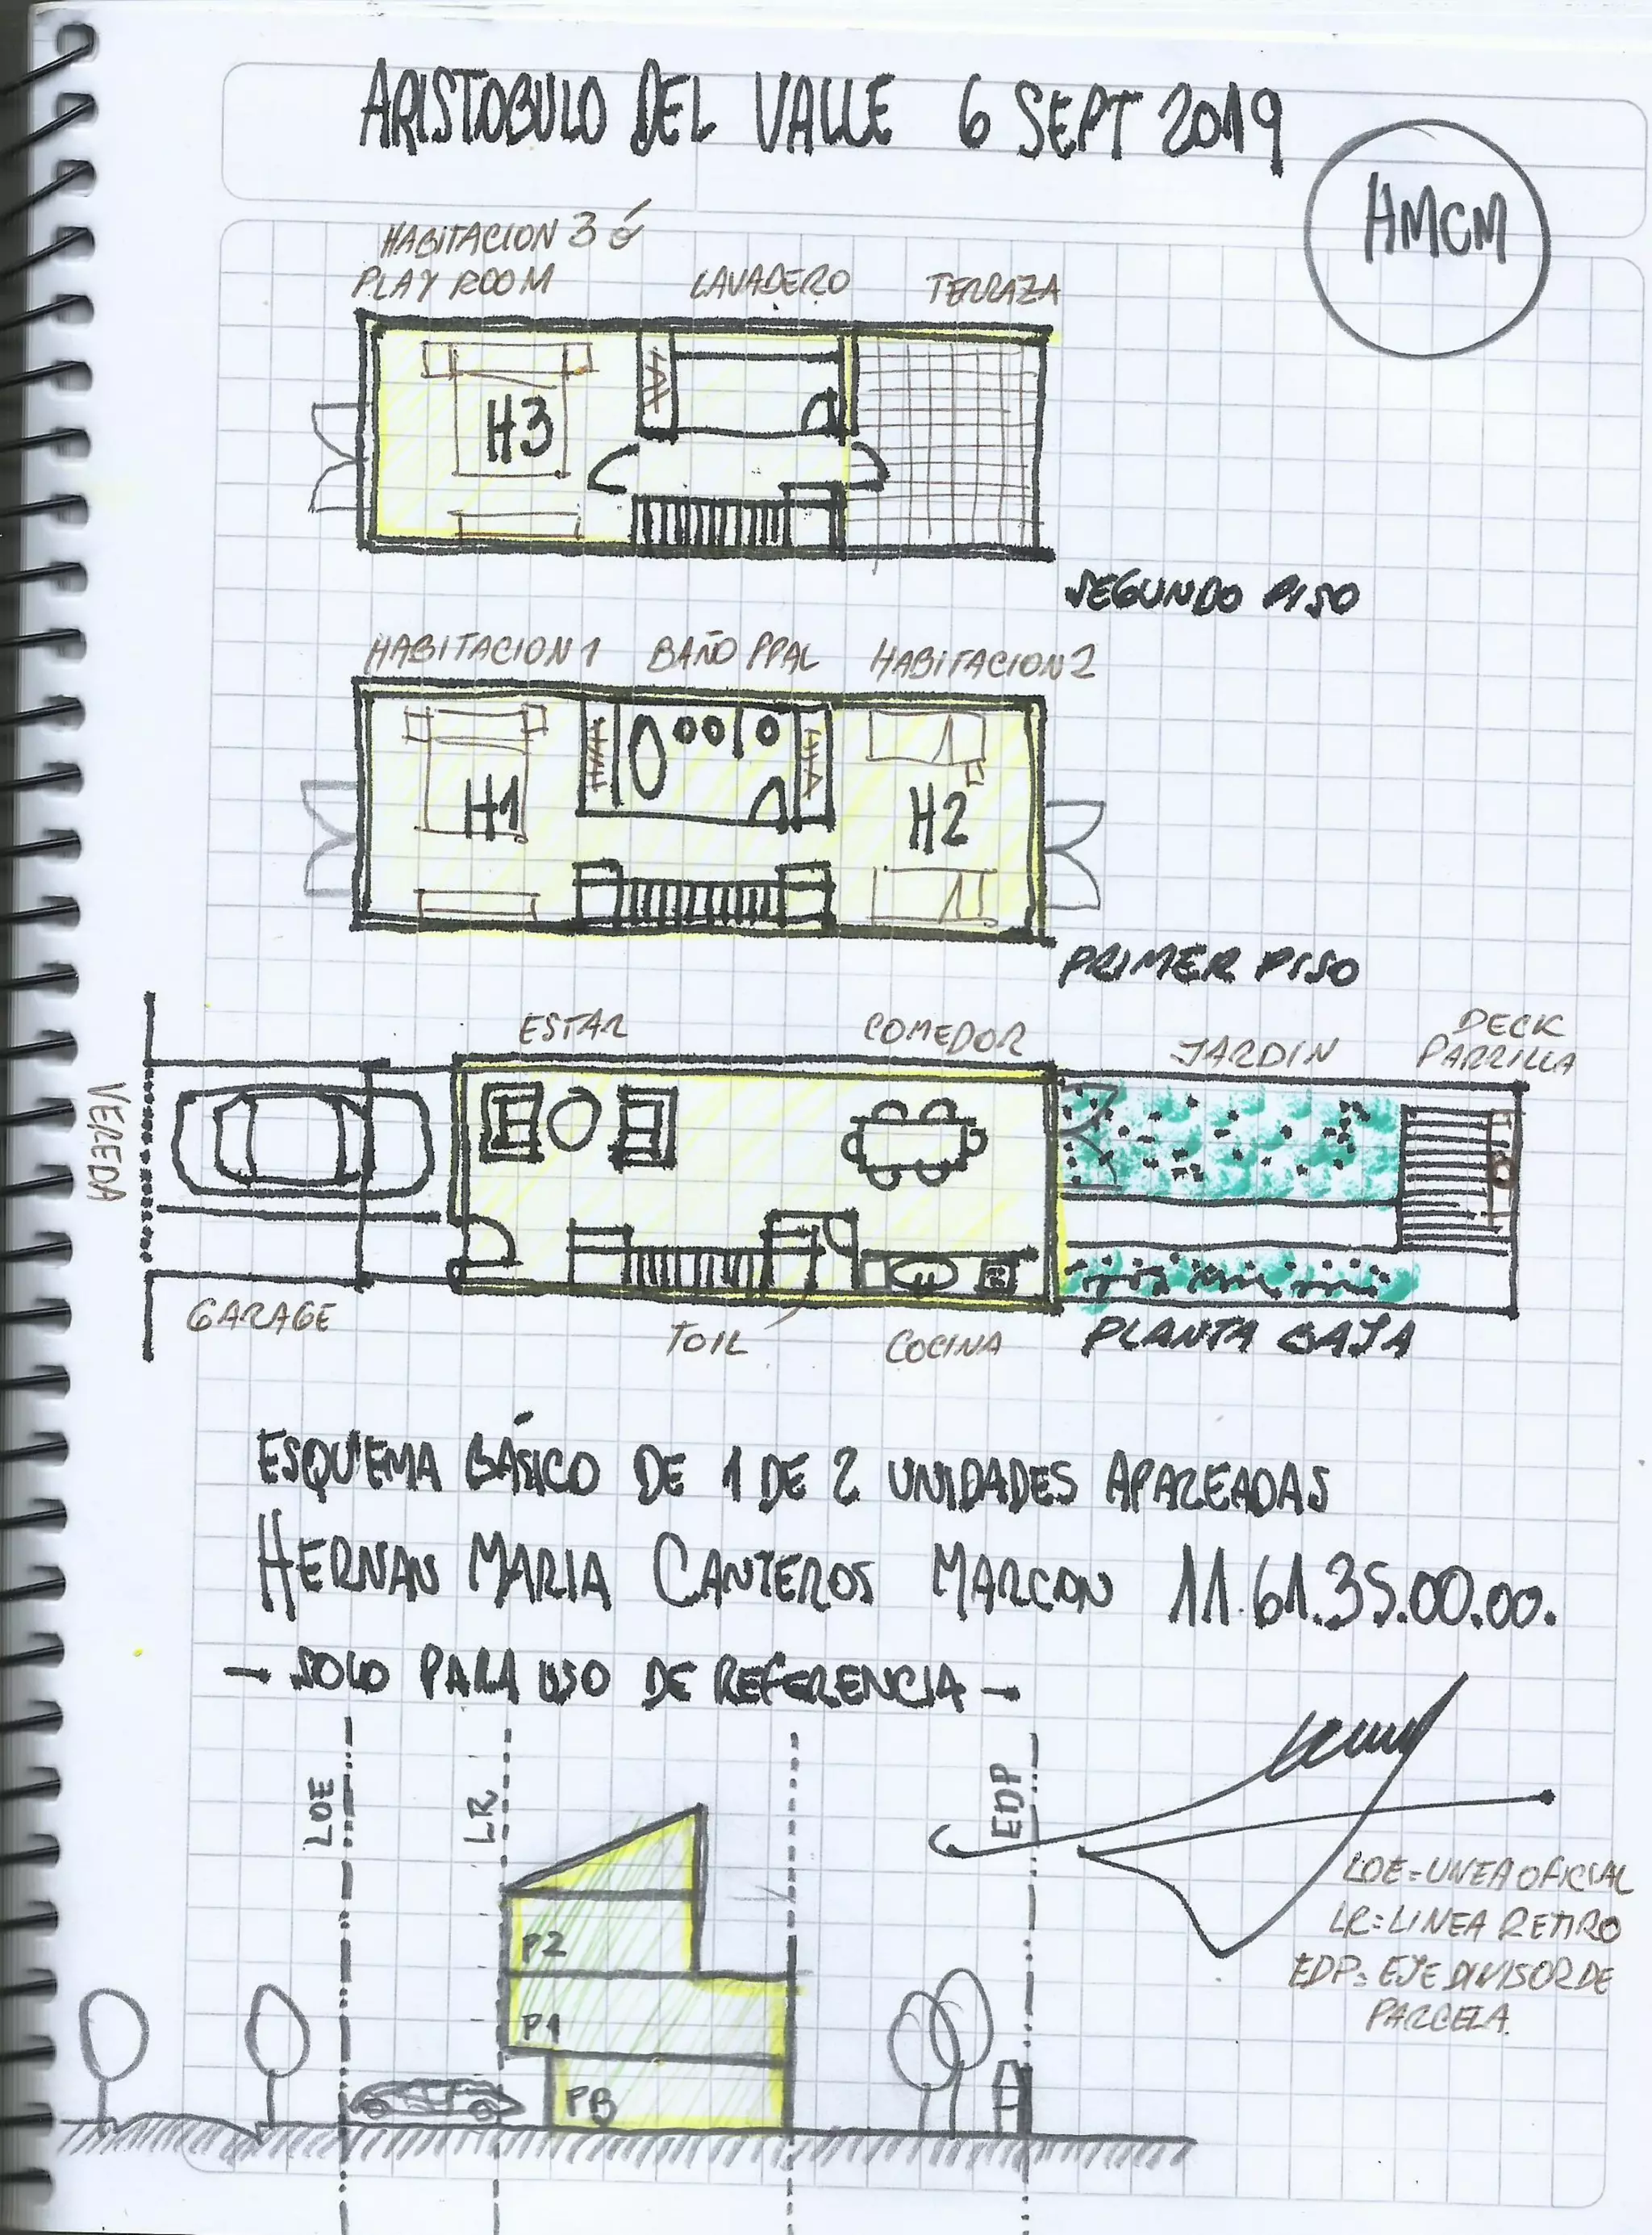 ARISTOBULO DEL VALLE 6 SEPT 2019
HMCM
HABITACION 3 ó
PLAY ROOM
LAVADERO
TERRAZA
H3
SEGUNDO PISO
HABITACION 1
BAÑO PPAL
HABITACION 2
H1
H2
PRIMER PISO
ESTAR
COMEDOR
JARDIN
DECK
PARRILLA
VEREDA
GARAGE
TOIL
COCINA
PLANTA BAJA
ESQUEMA BÁSICO DE 1 DE 2 UNIDADES APAREADAS
HERNAN MARIA CANTEROS MARCON 11.61.35.00.00.
- SOLO PARA USO DE REFERENCIA -
LOE
LR
EDP
P2
P1
PB
LOE=LINEA OFICIAL
LR=LINEA RETIRO
EDP=EJE DIVISOR DE
PARCELA.